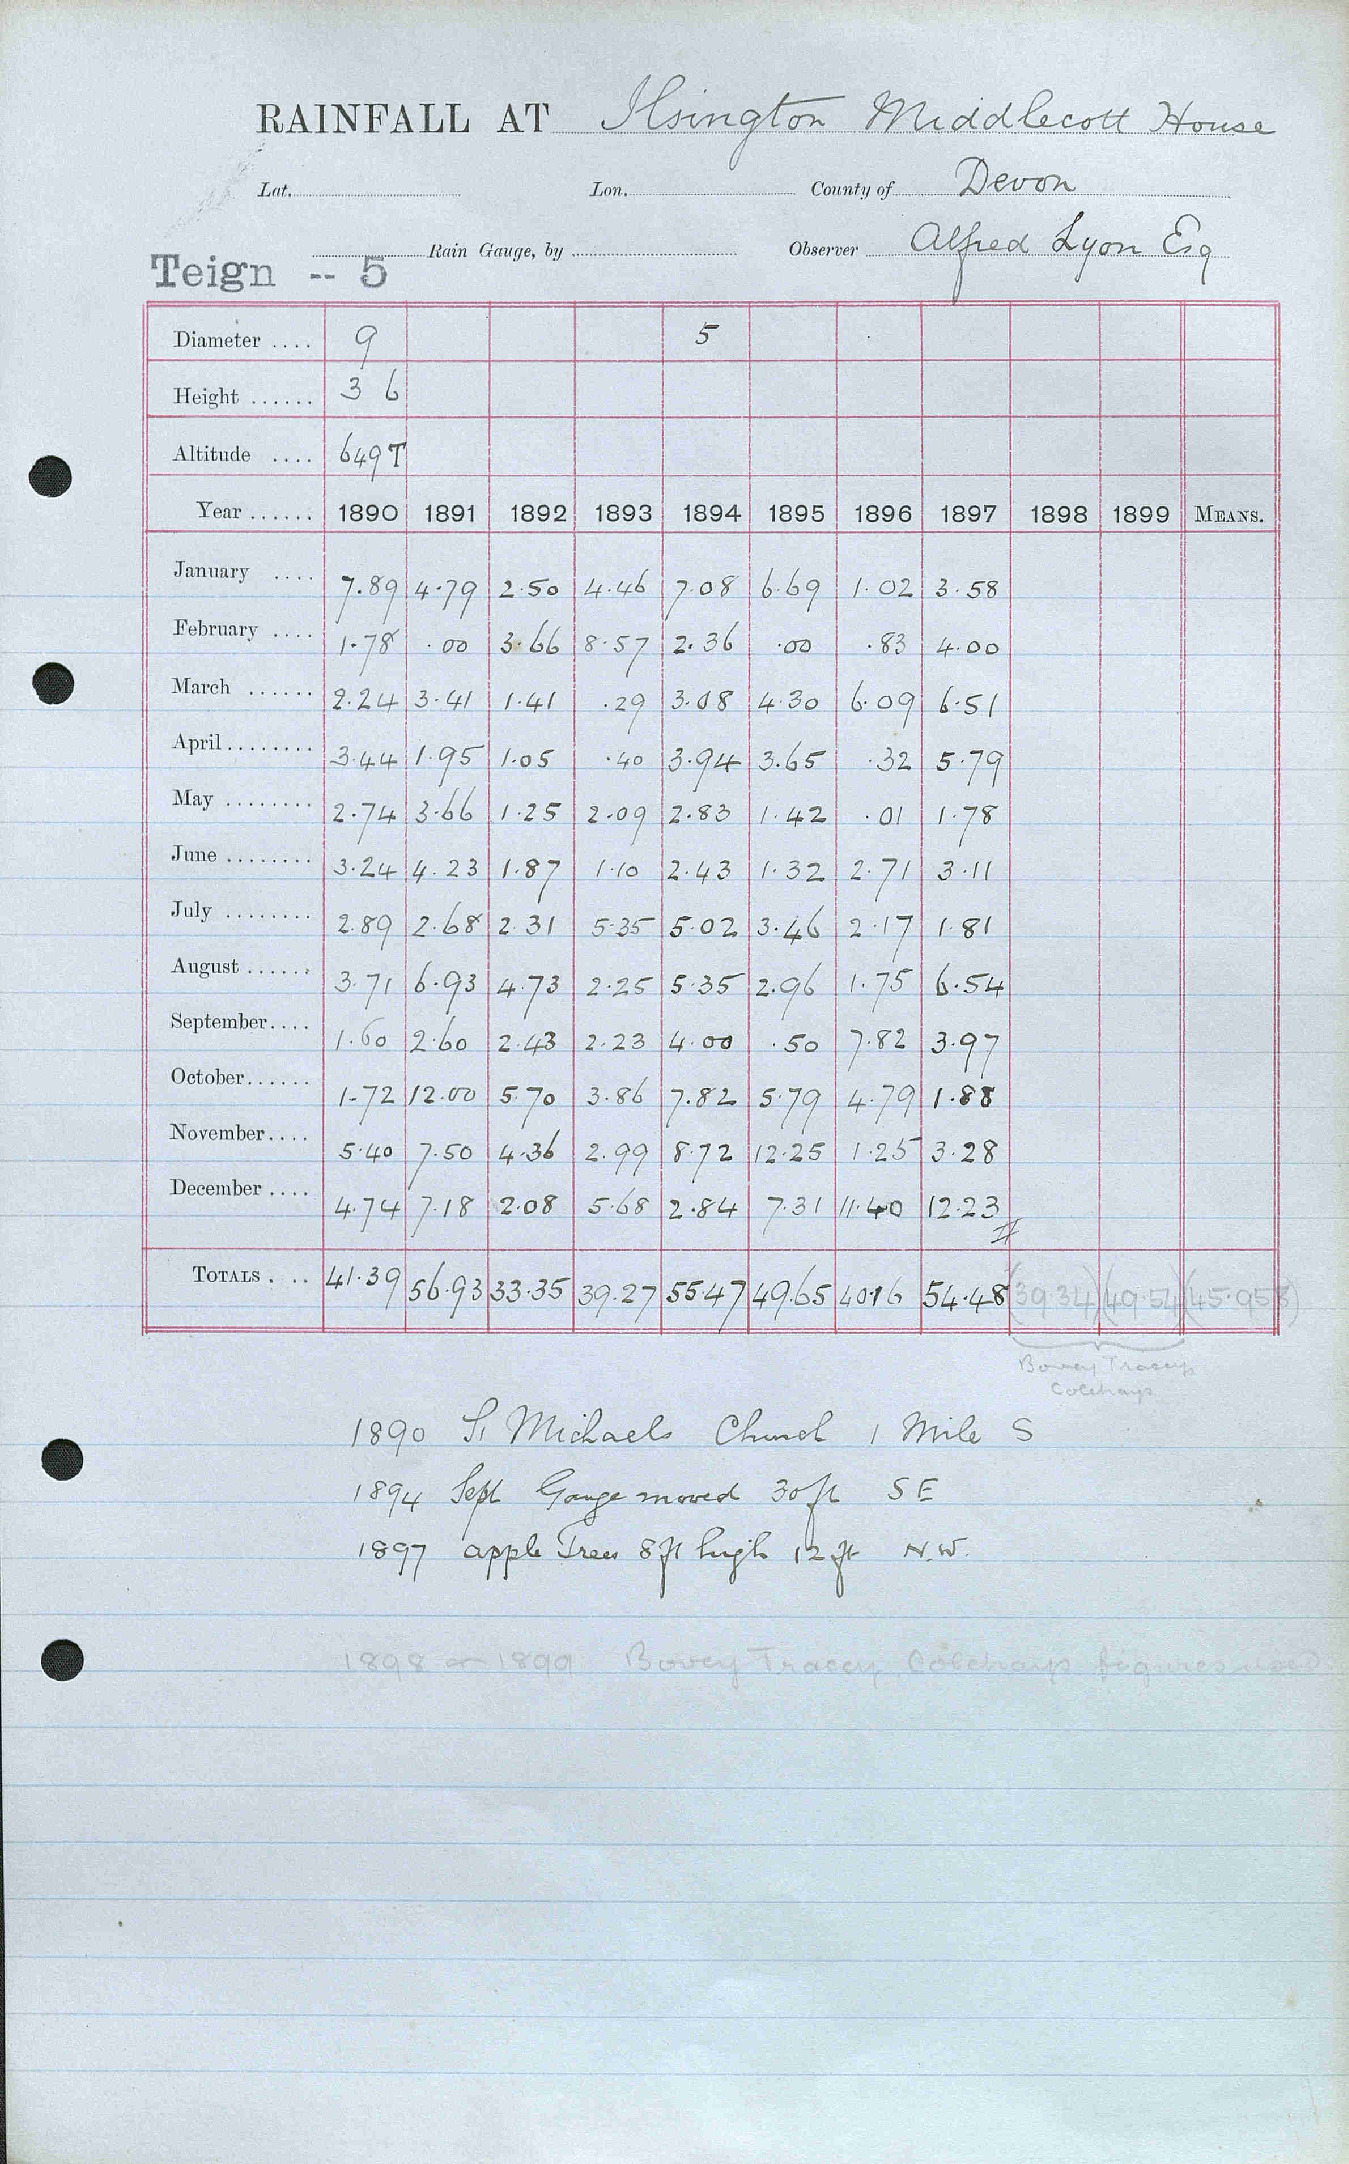 RAINFALL AT Ilsington Middlecott House
Lat. Lon. County of Devon
Rain Gauge, by Observer Alfred Lyon Esq
Teign -- 5
Diameter .... 9 5
Height ...... 3 6
Altitude .... 649 T
Year ...... 1890 1891 1892 1893 1894 1895 1896 1897 1898 1899 MEANS.
January .... 7.89 4.79 2.50 4.46 7.08 6.69 1.02 3.58
February .... 1.78 .00 3.66 8.57 2.36 .00 .83 4.00
March ...... 2.24 3.41 1.41 .29 3.08 4.30 6.09 6.51
April ........ 3.44 1.95 1.05 .40 3.94 3.65 .32 5.79
May ........ 2.74 3.66 1.25 2.09 2.83 1.42 .01 1.78
June ........ 3.24 4.23 1.87 1.10 2.43 1.32 2.71 3.11
July ........ 2.89 2.68 2.31 5.35 5.02 3.46 2.17 1.81
August ...... 3.71 6.93 4.73 2.25 5.35 2.96 1.75 6.54
September .... 1.60 2.60 2.43 2.23 4.00 .50 7.82 3.97
October ...... 1.72 12.00 5.70 3.86 7.82 5.79 4.79 1.88
November .... 5.40 7.50 4.36 2.99 8.72 12.25 1.25 3.28
December .... 4.74 7.18 2.08 5.68 2.84 7.31 11.40 12.23
TOTALS . .. 41.39 56.93 33.35 39.27 55.47 49.65 40.16 54.48 (39.34) (49.54) (45.958)
Bovey Tracey
Colehays
1890 St Michaels Church 1 Mile S
1894 Sept Gauge moved 30 ft S E
1897 apple Trees 8 ft high 12 ft N.W.
1898 1899 Bovey Tracey, Colehays figures used